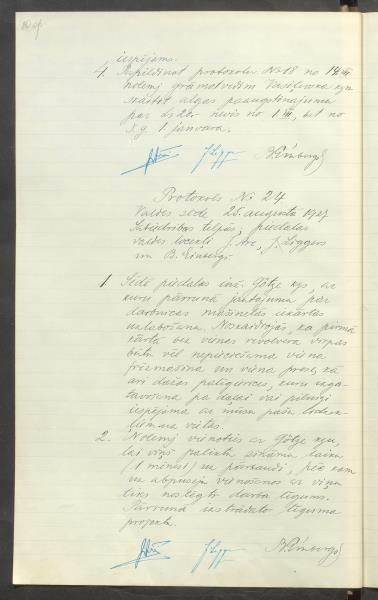 iespējams.
4. Papildinot protokolu № 18 no 14. III
nolemj grāmatvedim Vasiļevska kgm
skaitīt algas paaugstinājumu
par Ls 20.- nevis no 1. III, bet no
š. g. 1. janvara.
J. Ligger B. Einbergs
Protokols № 24
Valdes sēde 25. augustā 1927
Sabiedrības telpās, piedalas
valdes locekļi J. Arc, J. Liggers
un B. Einbergs.
1. Sēdē piedalas inž. Götze kgs, ar
kuru pārrunā jautājumu par
darbnīcas mašinelās iekārtas
uzlabošanu. Noskaidrojas, ka pirmā
kārtā bez vienas revolvera virpas
būtu vēl nepieciešama viena
frēzmašīna un viena prese, kā
arī dažas palīgierīces, kuru izga-
tavošana pa daļai vai pilnīgi
iespējama ar mūsu pašu
uz vietas.
2. Nolemj vienoties ar Götze kgu,
lai viņš paliktu zināmu laiku
(1 mēnesi) uz pārbaudi, pēc kam
un abpusēja vienošanos ar viņu
tiks noslēgts darba līgums.
Pārrunā izstrādāto līguma
projektu.
J. Ligger B. Einbergs